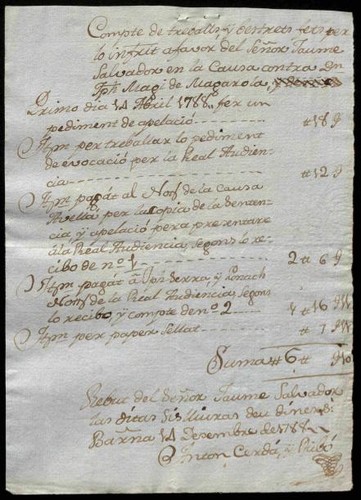 Compte de treballs y bestrets fets per
lo infrit a favor del Señor Jaume
Salvador en la Causa contra Dn
Jph Magi de Magarola,
Primo dia 14 Abril 1788 fer un
pediment de apelació # 18 #
Itm per treballar lo pediment
de evocació per la Real Audien-
cia # 12 #
Itm pagat al Nott de la causa
Avellá per la copia de la senten-
cia y apelació pera presentar
á la Real Audiencia, segons lo re-
cibo de no 1 2 # 6 #
Itm pagat á Jph Serra, y
Nott de la Real Audiencia, segons
lo recibo, y compte de no 2 # 16
Itm per paper sellat # 7
Suma # 6 # 
Rebut del Señor Jaume Salvador
las ditas sis lliuras deu diners
Barña 14 Desembre de 1788
Anton Cerdá, y